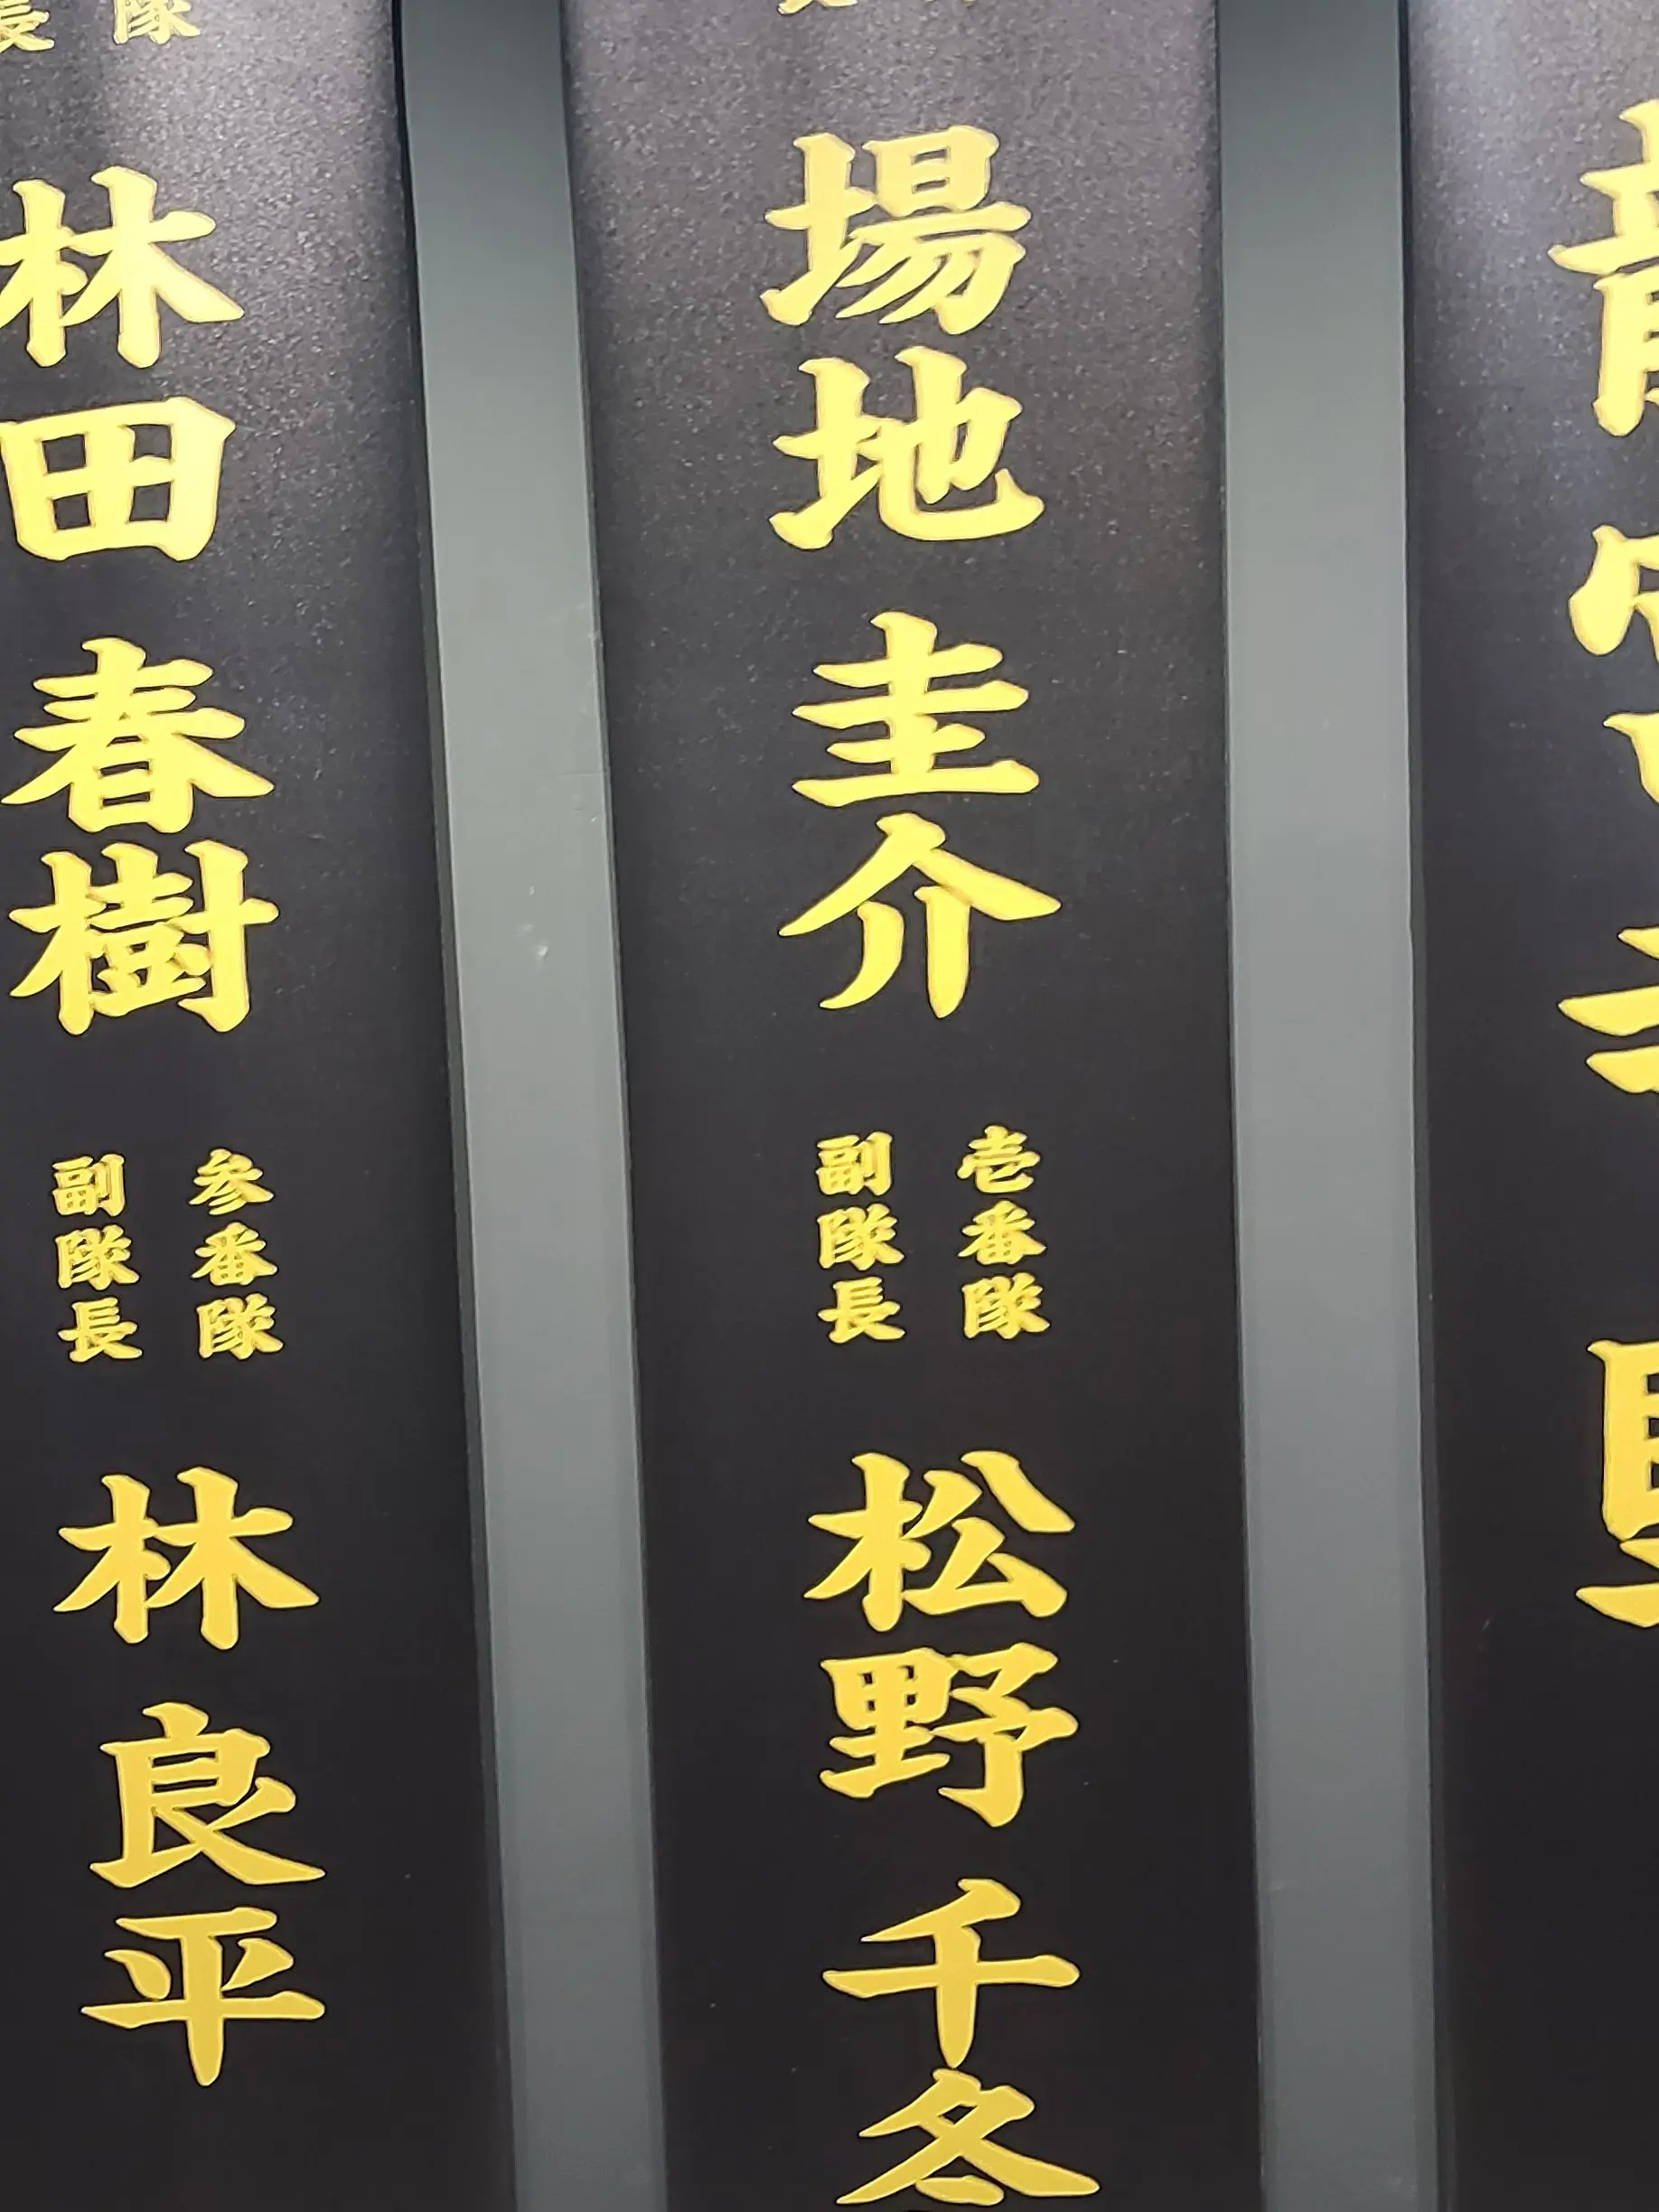 場地 圭介
壱番隊
副隊長
松野 千冬
隊
長
林田 春樹
参番隊
副隊長
林 良平